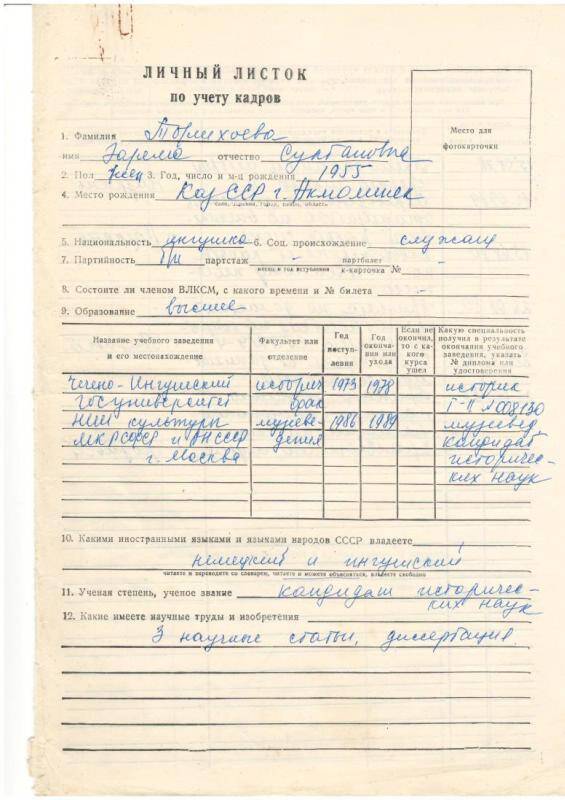 ЛИЧНЫЙ ЛИСТОК
по учету кадров
Место для
фотокарточки
1. Фамилия
имя Зарема отчество Султановна
2. Пол жен 3. Год, число и м-ц рождения 1955
4. Место рождения Каз ССР г. Акмолинск
село, деревня, город, район, область
5. Национальность ингушка 6. Соц. происхождение служащ
7. Партийность б/п партстаж - партбилет -
месяц и год вступления к-карточка №
8. Состоите ли членом ВЛКСМ, с какого времени и № билета -
9. Образование высшее
Название учебного заведения и его местонахождение
Факультет или отделение
Год поступления
Год окончания или ухода
Если не окончил, то с какого курса ушел
Какую специальность получил в результате окончания учебного заведения, указать № диплома или удостоверения
Чечено-Ингушский историч 1973 1978 историк
госуниверситет фак Г-II № 008130
НИИ культуры музееве- 1986 1989 музеевед
МК РСФСР и АН СССР дения кандидат
г. Москва историчес-
ких наук
10. Какими иностранными языками и языками народов СССР владеете
немецкий и ингушский
читаете и переводите со словарем, читаете и можете объясняться, владеете свободно
11. Ученая степень, ученое звание кандидат историчес-
ких наук
12. Какие имеете научные труды и изобретения
3 научные статьи, диссертация.